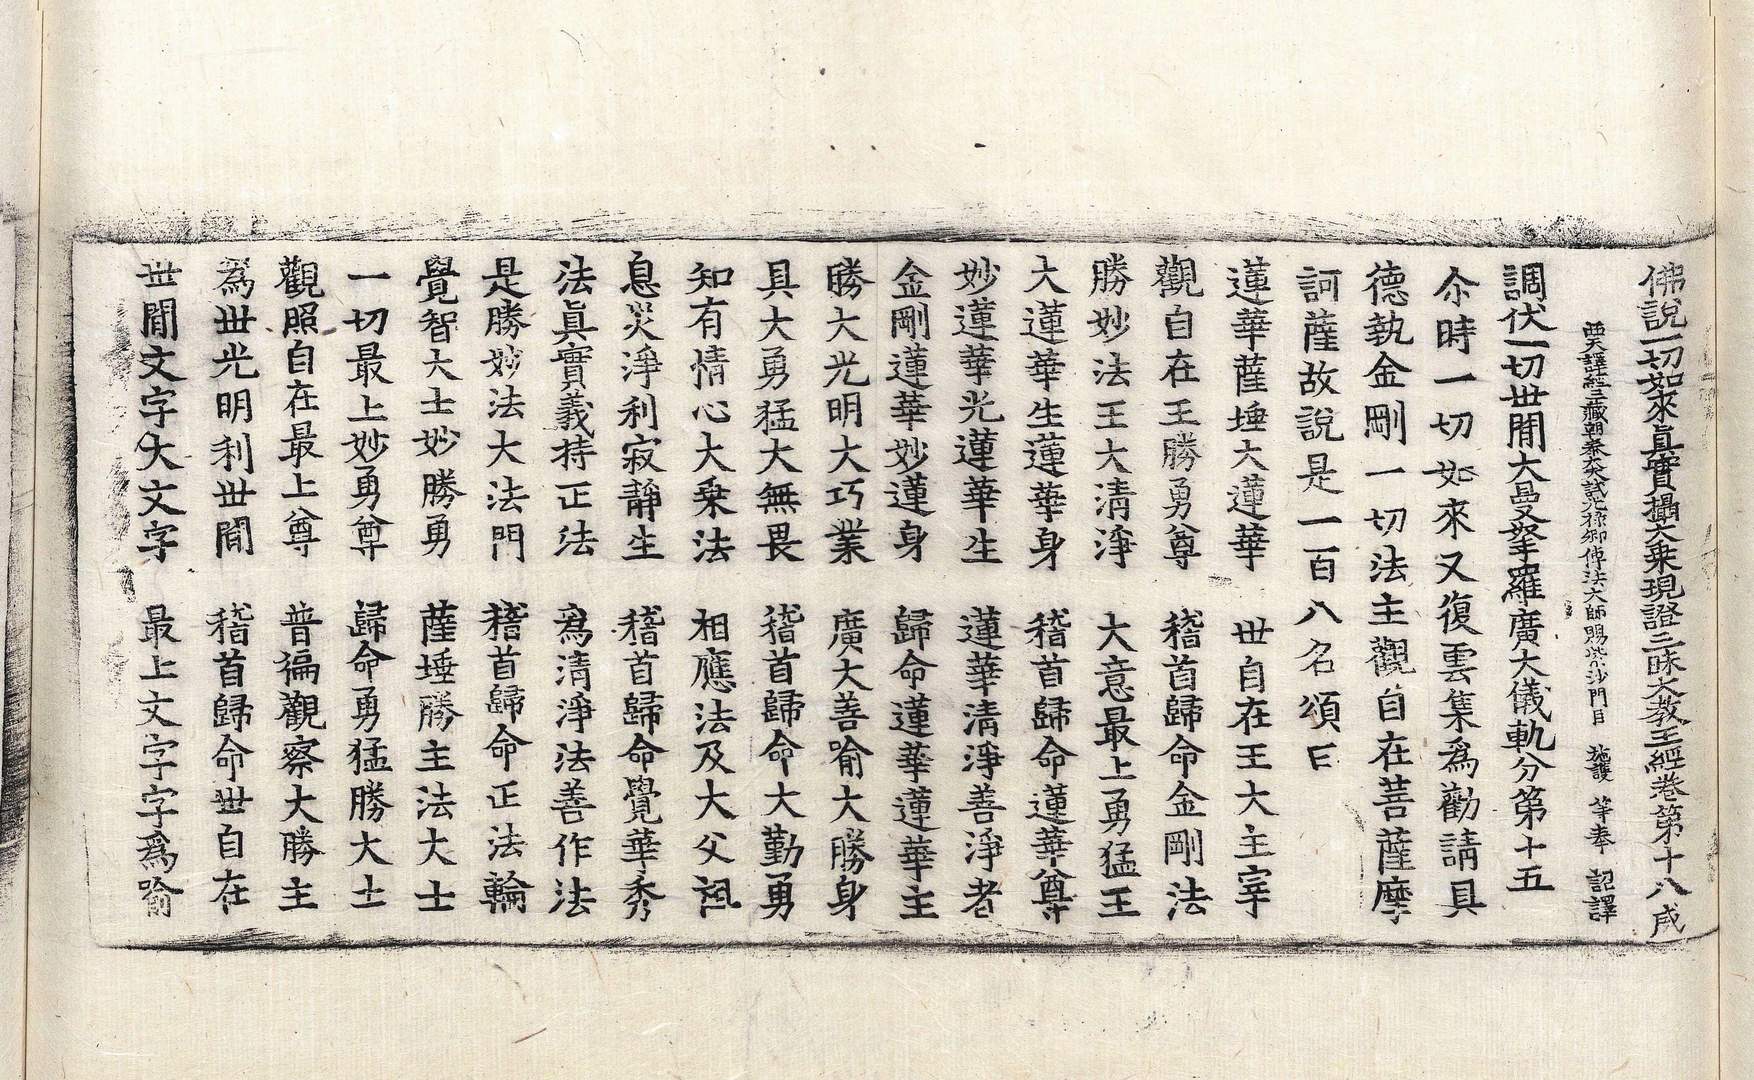 佛說一切如來眞實攝大乘現證三昧大教王經卷第十八 咸
西天譯經三藏朝奉大夫試光祿卿傳法大師賜紫沙門臣 施護 等奉 詔譯
調伏一切世閒大曼拏羅廣大儀軌分第十五
尒時一切如來又復雲集爲勸請具
德執金剛一切法主觀自在菩薩摩
訶薩故說是一百八名頌曰
蓮華薩埵大蓮華 世自在王大主宰
觀自在王勝勇尊 稽首歸命金剛法
勝妙法王大清淨 大意最上勇猛王
大蓮華生蓮華身 稽首歸命蓮華尊
妙蓮華光蓮華生 蓮華清淨善淨者
金剛蓮華妙蓮身 歸命蓮華蓮華主
勝大光明大巧業 廣大善喻大勝身
具大勇猛大無畏 稽首歸命大勤勇
知有情心大乘法 相應法及大父
息災淨利寂靜生 稽首歸命覺華秀
法眞實義持正法 爲清淨法善作法
是勝妙法大法門 稽首歸命正法輪
覺智大士妙勝勇 薩埵勝主法大士
一切最上妙勇尊 歸命勇猛勝大士
觀照自在最上尊 普徧觀察大勝主
爲世光明利世閒 稽首歸命世自在
世閒文字大文字 最上文字字爲喻